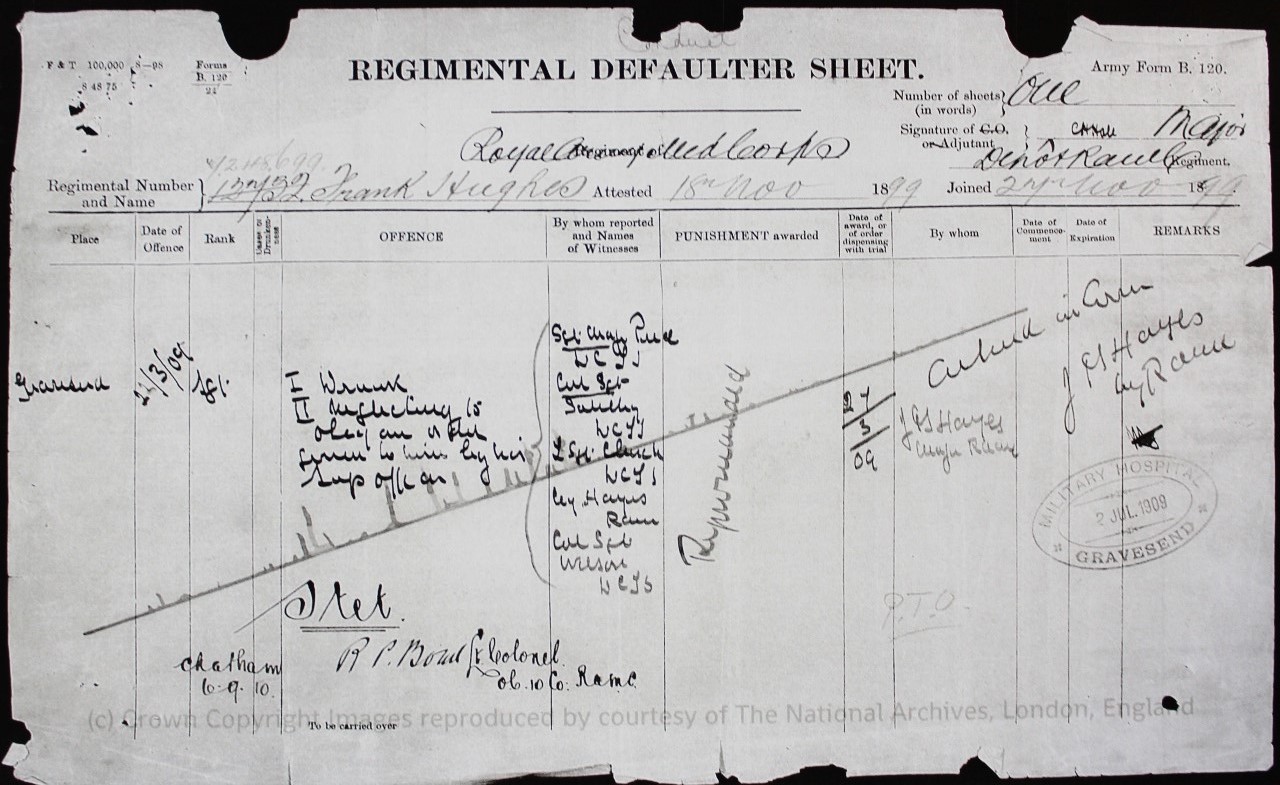 Conduct
F & T 100,000 8—98
S 4875
Forms
B. 120
21
REGIMENTAL DEFAULTER SHEET.
Army Form B. 120.
Number of sheets
(in words)
One
Signature of C.O.
or Adjutant
Major
Royal Army Med Corps
Regiment of
Depôt R.A.M.C.
Regiment.
Regimental Number
and Name
Frank Hughes Attested 18th Nov 1899 Joined Nov 1899
Place
Date of
Offence
Rank
Cases of
Drunken-
ness
OFFENCE
By whom reported
and Names
of Witnesses
PUNISHMENT awarded
Date of
award, or
of order
dispensing
with trial
By whom
Date of
Commence-
ment
Date of
Expiration
REMARKS
Gravesend
/3/09
Sgt.
I Drunk
II Neglecting to
obey an order
given to him by his
Sup officer
Sgt. Maj
Col Sgt
L Sgt. Church
Maj. Hayes
Ramc
Col Sgt
Wilson
Reprimanded
3
09
J G S Hayes
Major Ramc
in Error
J G S Hayes
Maj Ramc
MILITARY HOSPITAL
2 JUL.1909
GRAVESEND
Stet.
P.T.O.
Chatham
6.9.10.
R P. Bond Lt Colonel.
O.C. 10 Co. R.a.m.c.
(c) Crown Copyright Images reproduced by courtesy of The National Archives, London, England
To be carried over